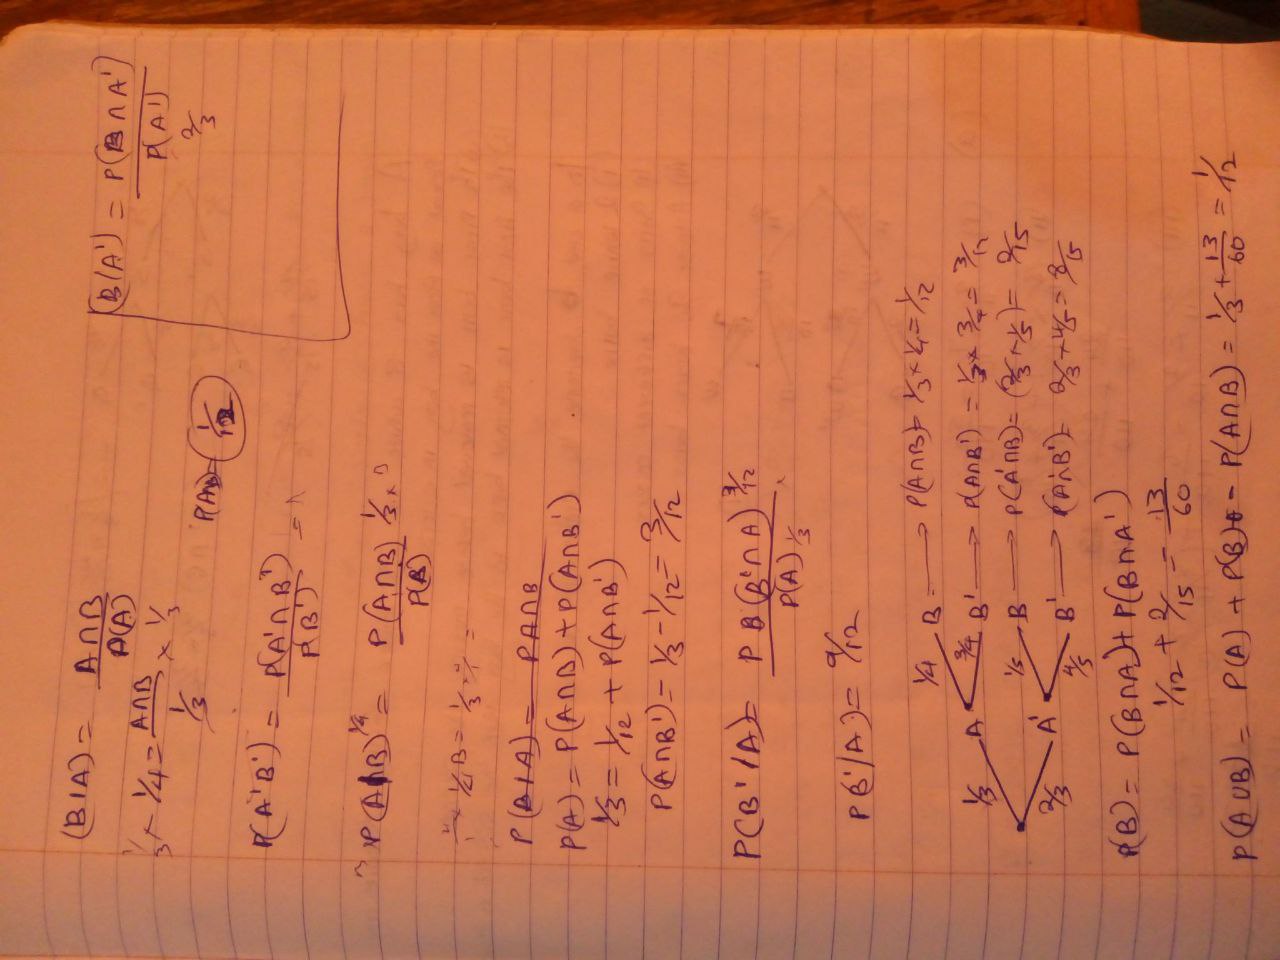 (B/A) = A∩B / P(A)
1/3 × 1/4 = A∩B / 1/3 × 1/3
P(A∩B) = 1/12
(B/A') = P(B∩A') / P(A')
2/3
P(A'B') = P(A'∩B') / P(B') =
P(A/B) 1/4 = P(A∩B) 1/3 × / P(B)
1/4 B = 1/3 =
P(B/A) = PA∩B
P(A) = P(A∩B) + P(A∩B')
1/3 = 1/12 + P(A∩B')
P(A∩B') = 1/3 - 1/12 = 3/12
P(B'/A) = P B(B'∩A) 3/12 / P(A) 1/3
P B'/A) = 9/12
1/4 B → P(A∩B) = 1/3 × 1/4 = 1/12
1/3 A 3/4 B' → P(A∩B') = 1/3 × 3/4 = 3/12
1/5 B → P(A'∩B) = (2/3 × 1/5) = 2/15
2/3 A' 4/5 B' → P(A'∩B') = 2/3 × 4/5 = 8/15
P(B) = P(B∩A) + P(B∩A')
1/12 + 2/15 = 13/60
P(A∪B) = P(A) + P(B) - P(A∩B) = 1/3 + 13/60 = 1/12